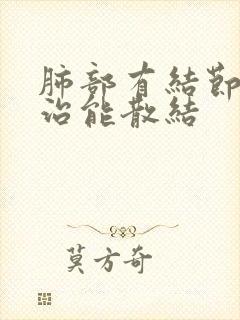 肺部有結節
治能散結
莫方奇